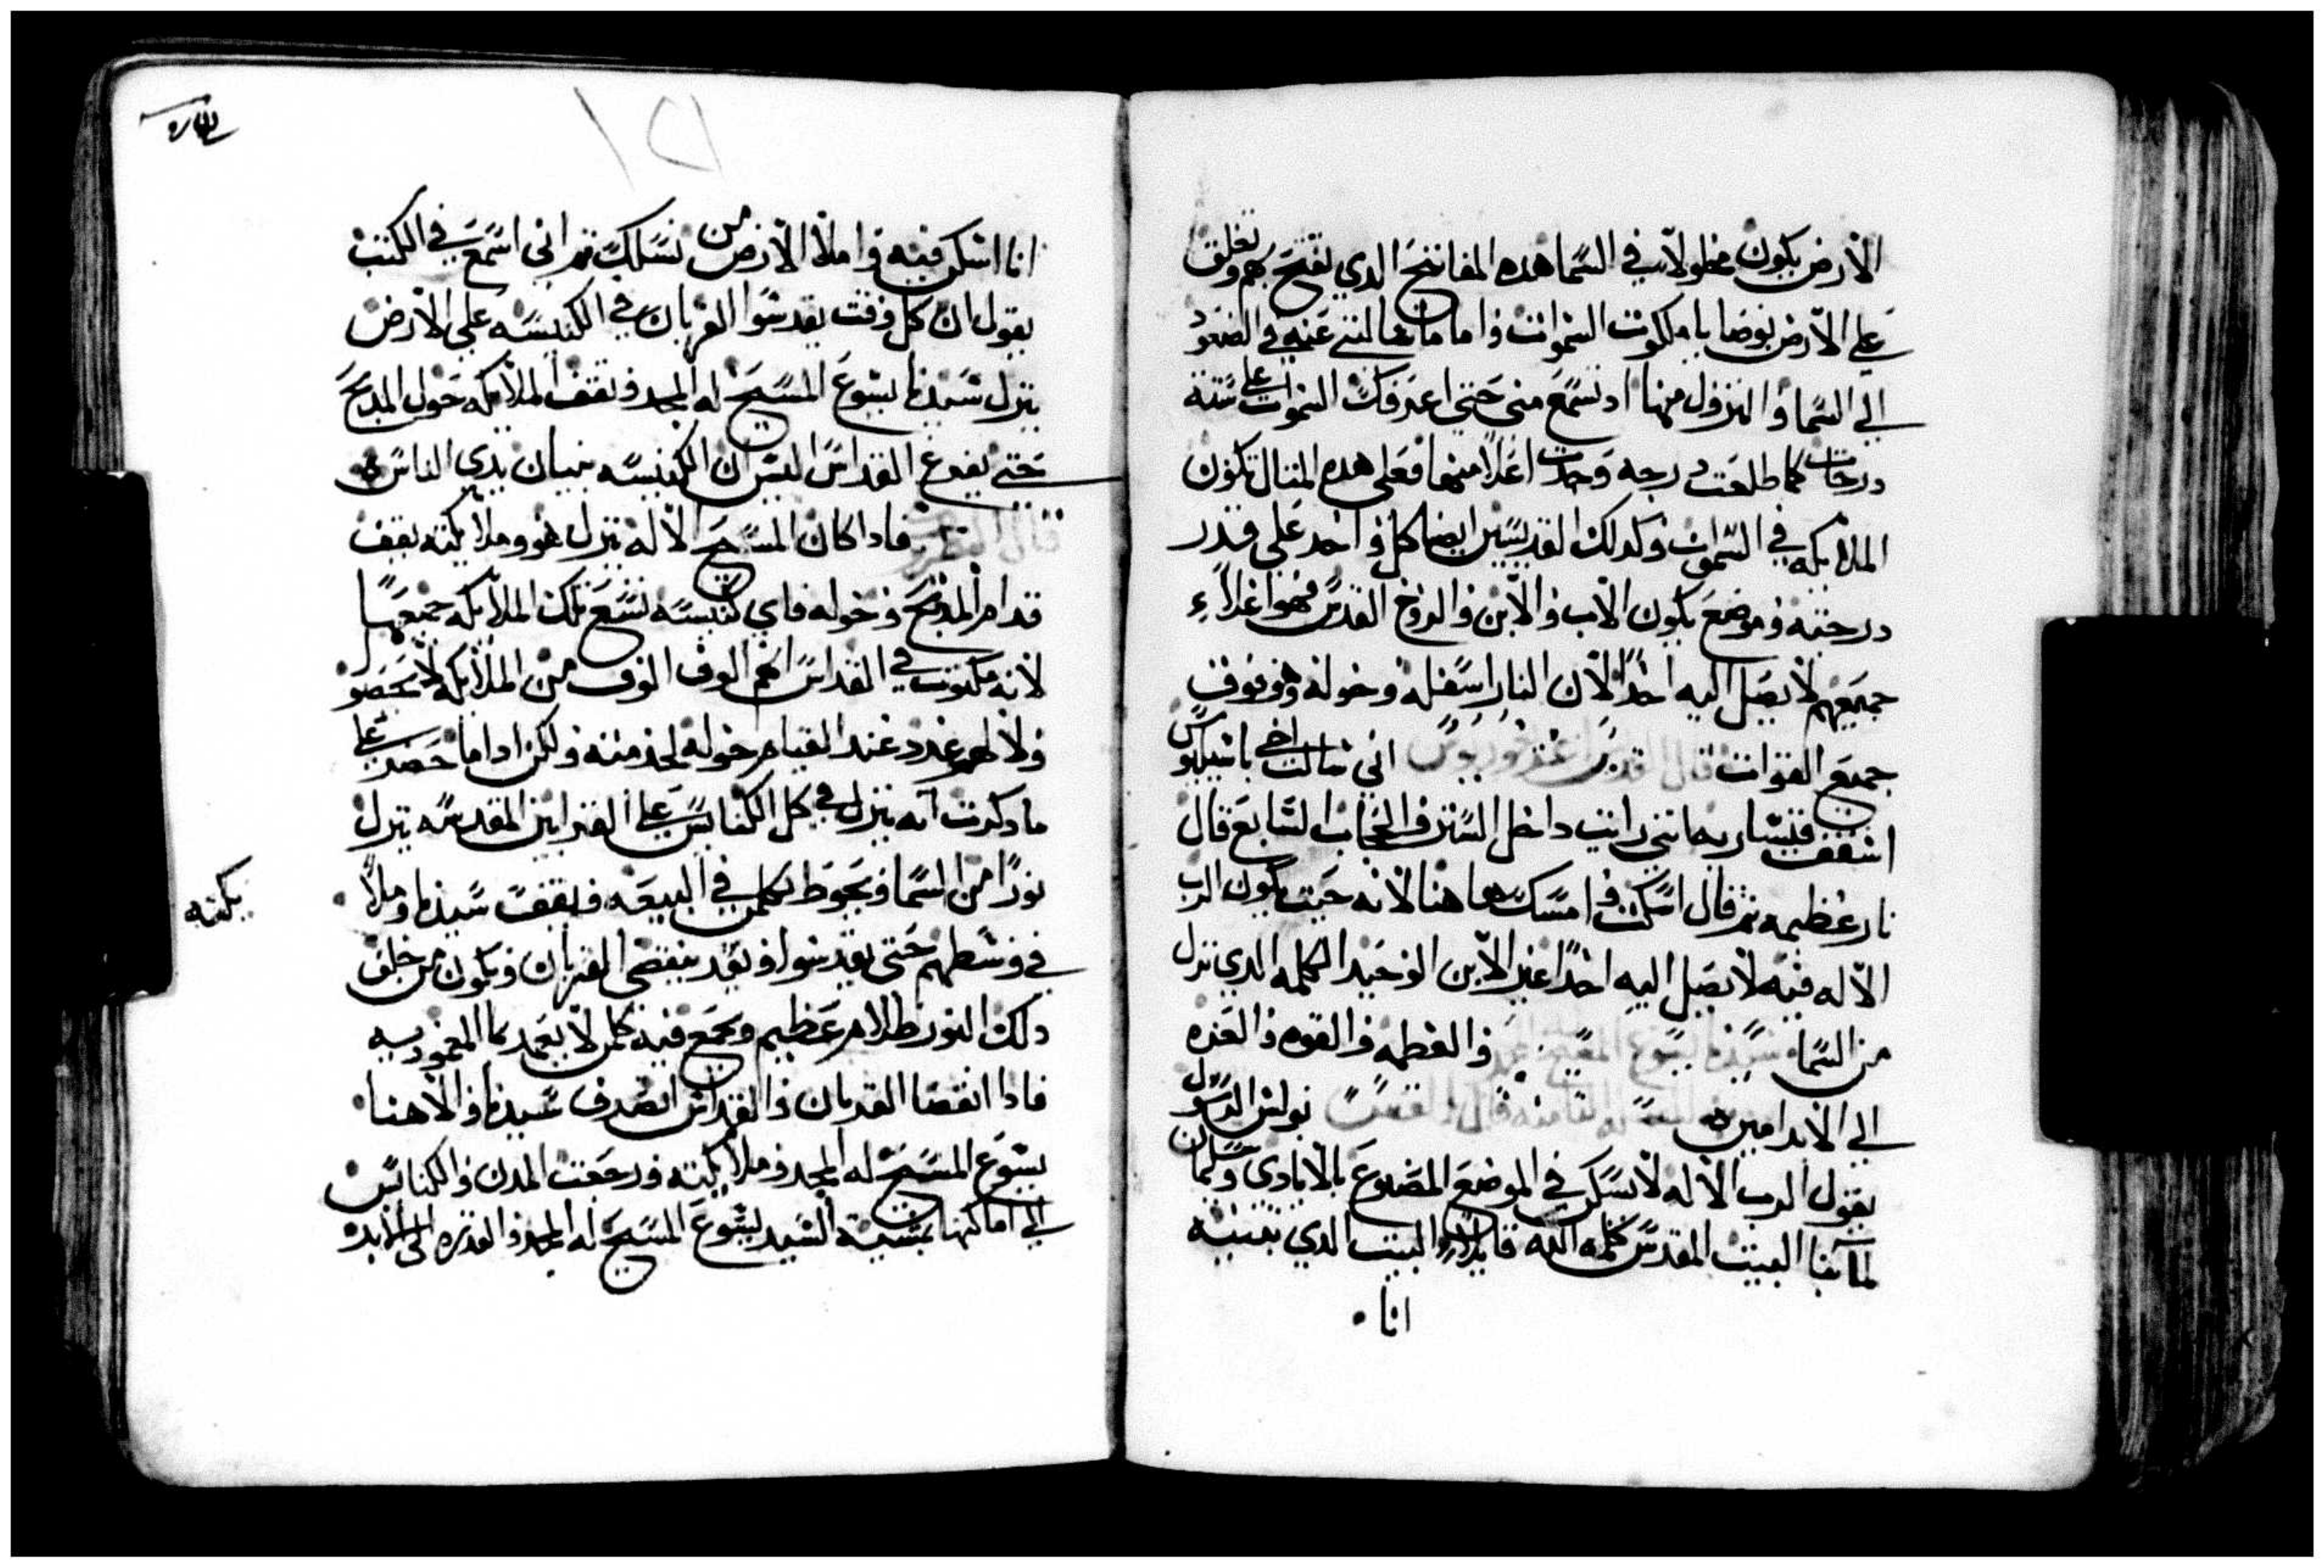 الارض يكون محلولا في السما هده المفاتيح الدي تفتح بهم وتغلق
على الارض بوصايا ملكوت السموات واما ما سالتني عنه في الصعود
الي السما والنزول منها اد تسمع مني حتى اعرفك السموات على ستة
درجات كلما طلعت درجه وجدت اعلا منها فعلى هده المتال تكون
الملايكه في السموات وكدلك القديسين ايضا كل واحد على قدر
درجته وموضع يكون الاب والابن والروح القدس فهو اعلاء
جميعهم لا يصل اليه احدا لان النار اسفله وحوله وهو فوق
جميع القوات قال القديس اغريغوريوس اني سالت اخي باسيليوس
اسقف قيساريه ماتني رايت داخل الستر والحجاب السابع قال
نار عظيمه تم قال اسكت وامسك هاهنا لانه حيت يكون الرب
الاله فيه لا يصل اليه احدا غير الابن الوحيد الكلمه الدي نزل
من السما سيدنا يسوع المسيح والعظمه والقوه والعزه
الي الابد امين قال القديس بولس الرسول
يقول الرب الاله لا يسكن في الموضع المصنوع بالايادي وسليمان
لما بنا البيت المقدس كلمه الله قايلا البيت الدي تبنيه
انا
انا اسكن فيه واملا الارض من نسلك تم اني اسمع في الكتب
يقول ان كل وقت يقدسوا القربان في الكنيسه على الارض
ينزل سيدنا يسوع المسيح له المجد وتقف الملايكه حول المدبح
حتى يفرغ القداس ليس ان الكنيسه بنيان يدي الناس
قال فادا كان المسيح الاله ينزل هو وملايكته يقف
قدام المدبح وحوله فاي كنيسه تسع تلك الملايكه جميعها
لانه مكتوب في القداس انهم الوف الوف من الملايكه لا تحصو
ولا لهم عدد عند القيام حوله لخدمته ولكن ادا ما حضر على
ما دكرت انه ينزل في كل الكنايس على القرابين المقدسه ينزل
نورا من السما ويحوط بكلمن في البيعه ويقف سيدنا وملا
يكته
في وسطهم حتى يقدسوا وبعد ينقضي القربان ويكون من خلف
دلك النور ظلام عظيم ويجمع فيه كلمن لا يعمد بما المعموديه
فادا انقضا القربان والقداس انصرف سيدنا والاهنا
يسوع المسيح له المجد وملايكته ورجعت المدن والكنايس
الي اماكنها بمشيه السيد يسوع المسيح له المجد والقدره الي الابد